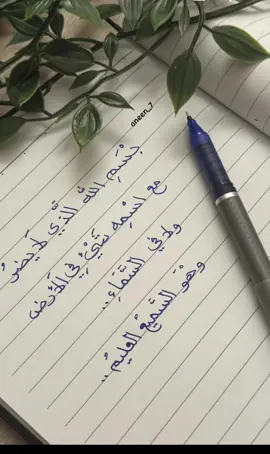 بِسْمِ اللهِ الَّذِي لَا يَضُرُّ
مَعَ اسْمِهِ شَيْءٌ فِي الْأَرْضِ
وَلَا فِي السَّمَاءِ..
وَهُوَ السَّمِيعُ العَلِيمُ..
aneen_7